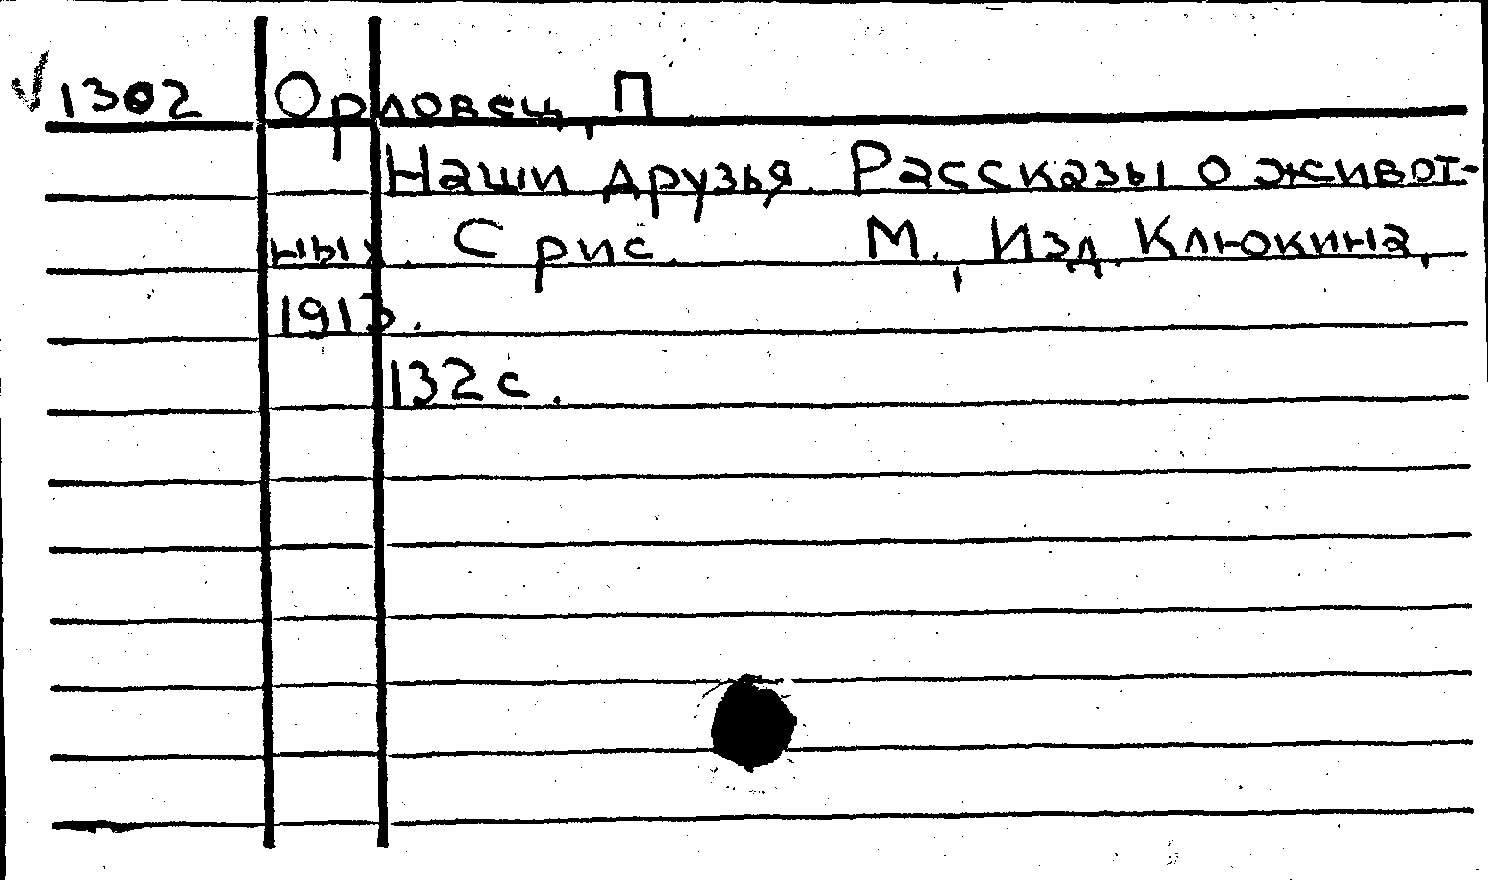 1302 Орловец, П
Наши друзья. Рассказы о живот-
ных. С рис. М., Изд. Клюкина,
1913.
132 с.